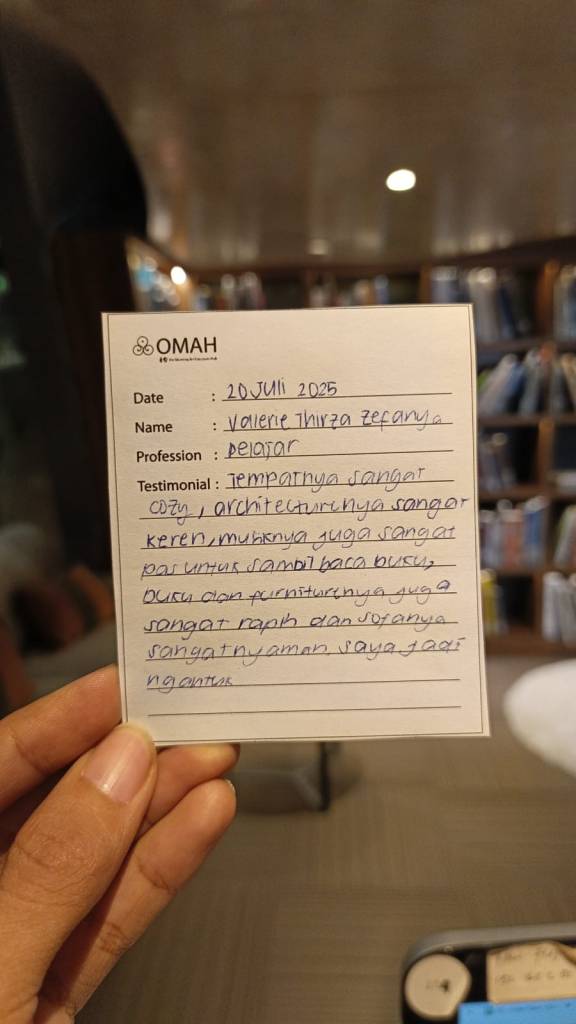 OMAH
Date : 20 Juli 2025
Name : Valerie Thirza Zefanya
Profession : Pelajar
Testimonial : Tempatnya sangat
cozy, architecturenya sangat
keren, musiknya juga sangat
pas untuk sambil baca buku,
buku dan furniturenya juga
sangat rapih dan sofanya
sangat nyaman saya jadi
ngantuk